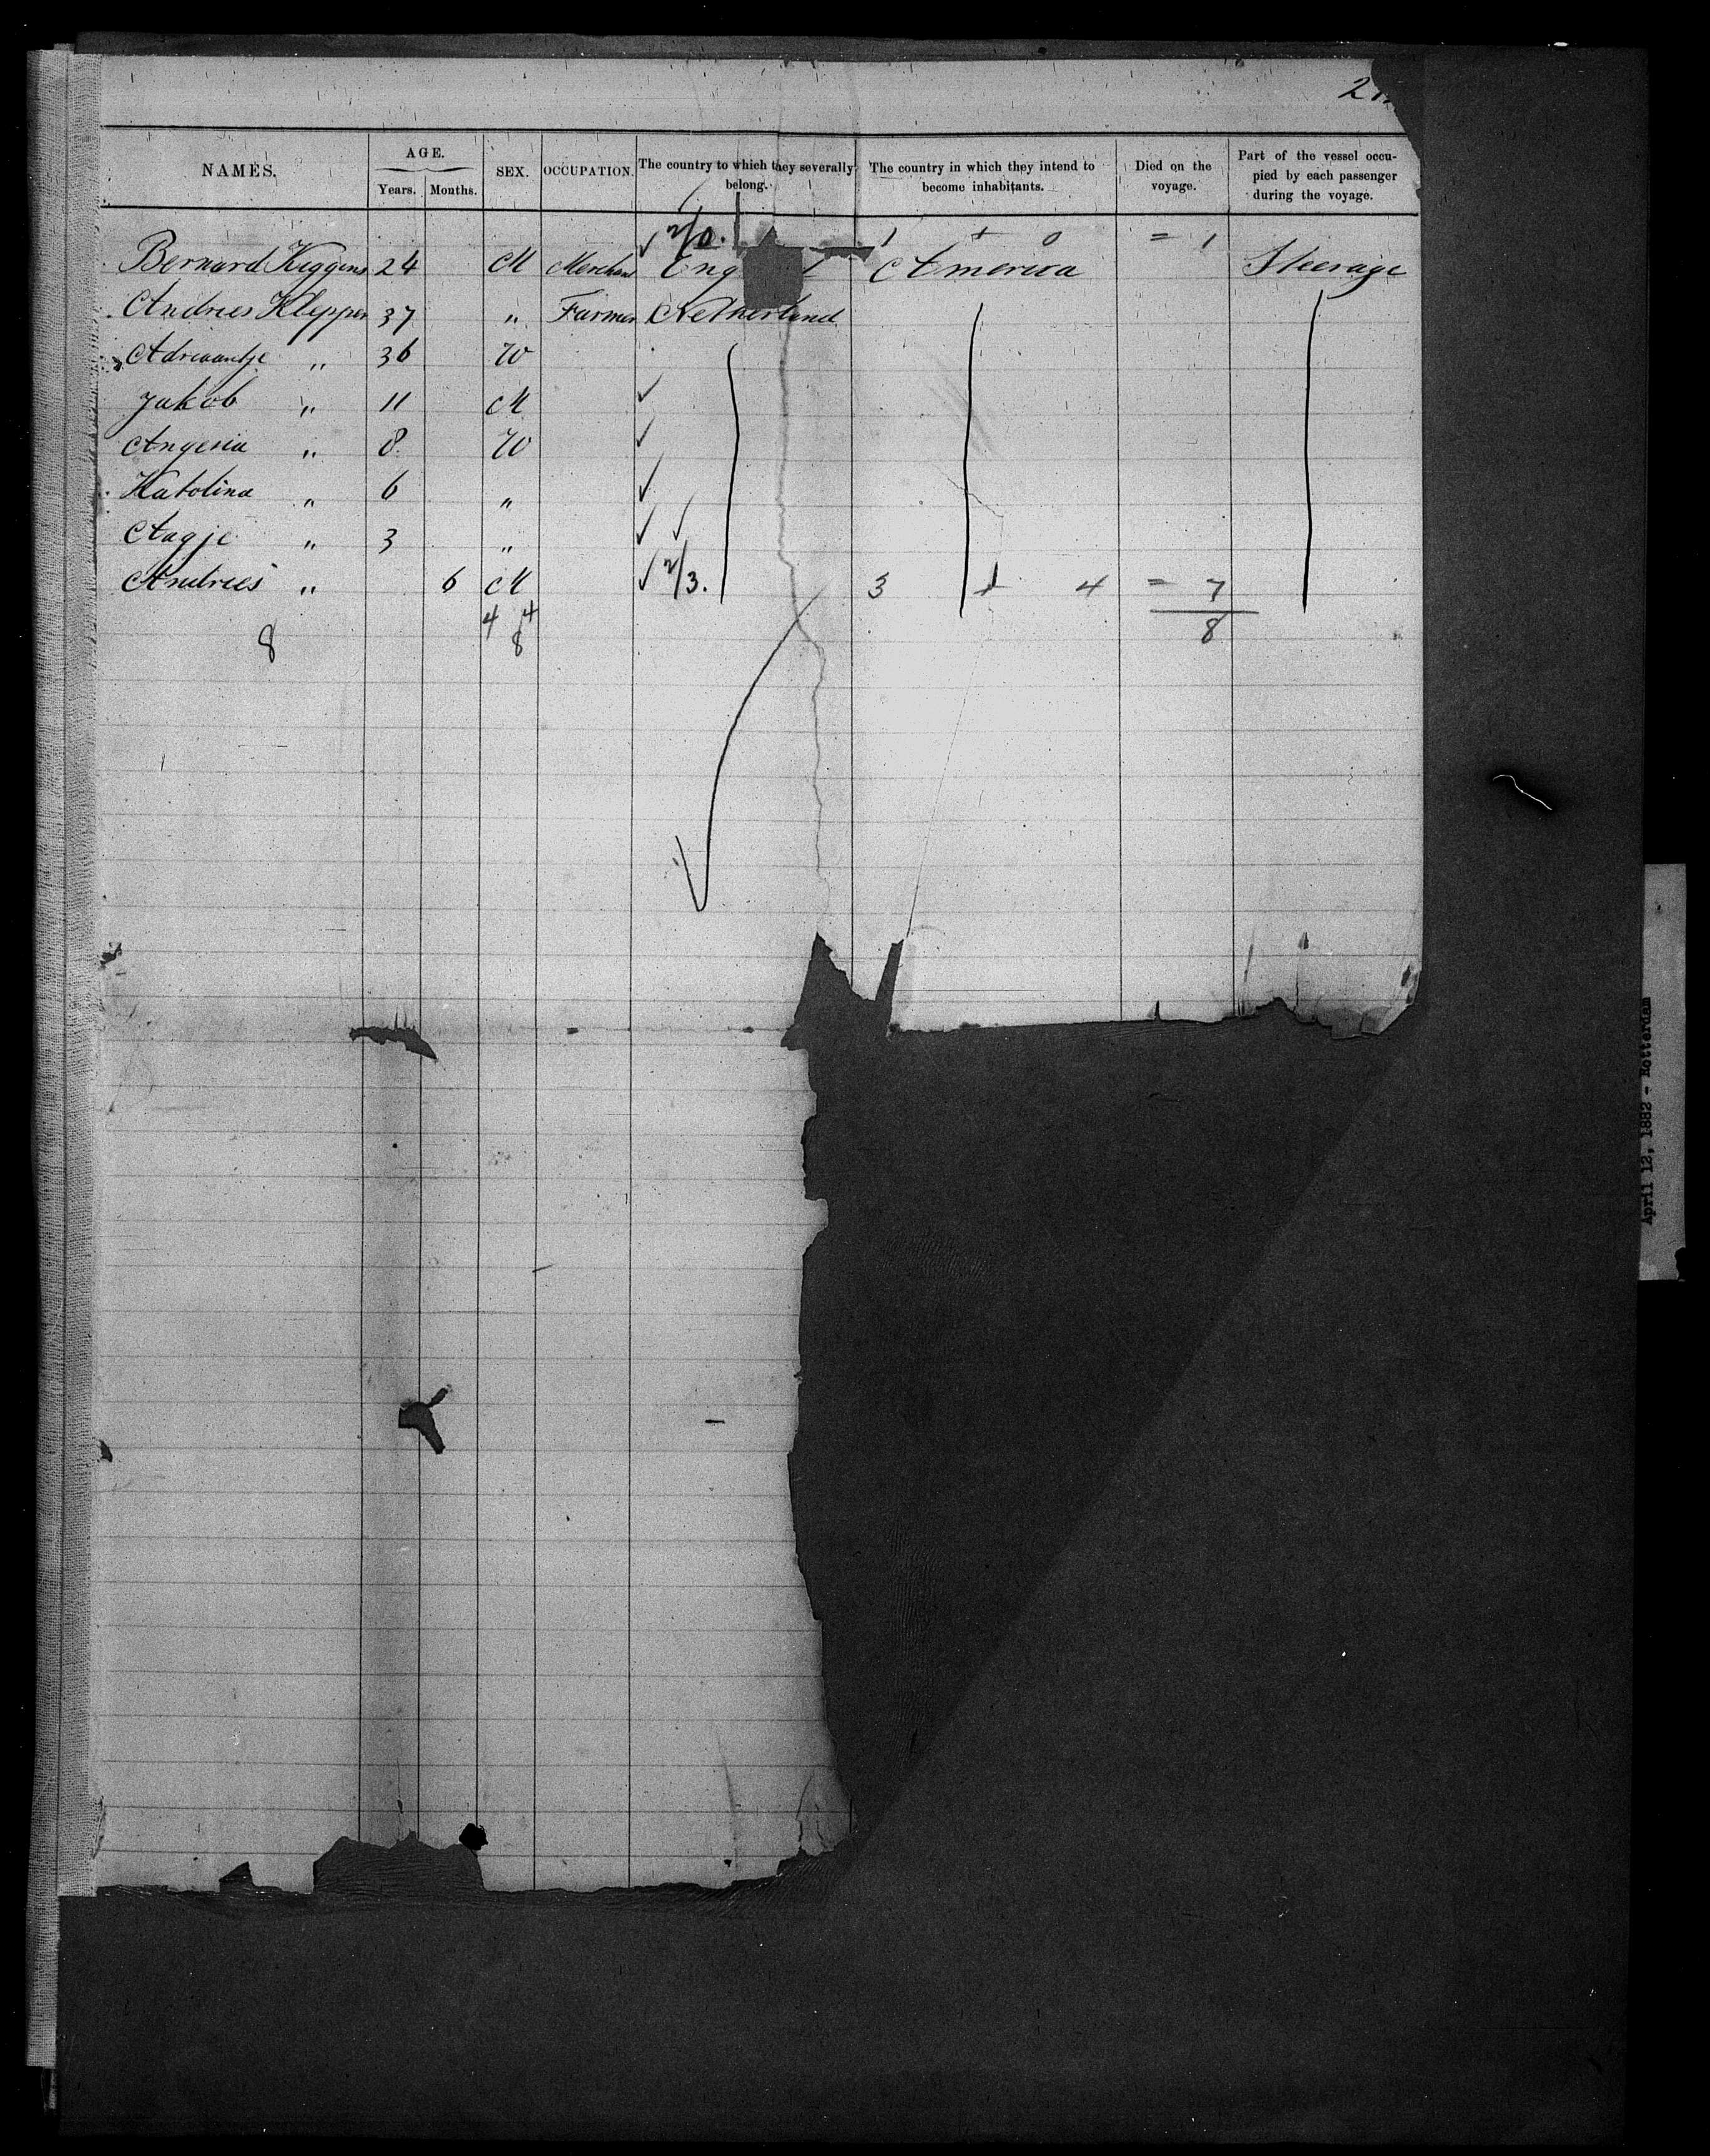 NAMES. AGE. Years. Months. SEX. OCCUPATION. The country to which they severally belong. The country in which they intend to become inhabitants. Died on the voyage. Part of the vessel occupied by each passenger during the voyage.
✓ 2/0. 1 + 0 = 1
Bernard Kiggins 24 M Merchant Eng America Steerage
Andries Klepper 37 " Farmer Netherland
Adriaantje " 36 W
Jakob " 11 M ✓
Angenia " 8 W ✓
Katolina " 6 " ✓
Aagje " 3 " ✓ ✓
Andries " 6 M ✓ 2/3. 3 + 4 = 7
4 4
8 8 8
April 12, 1882 - Rotterdam